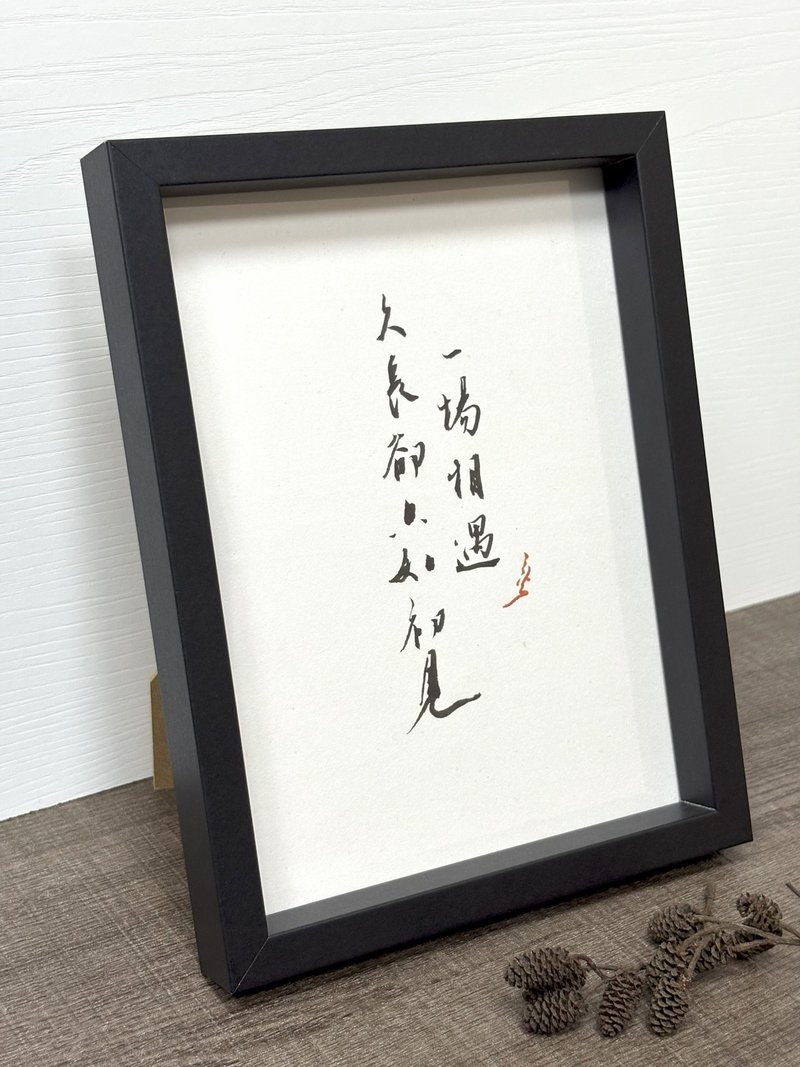 一場相遇
久長卻如初見